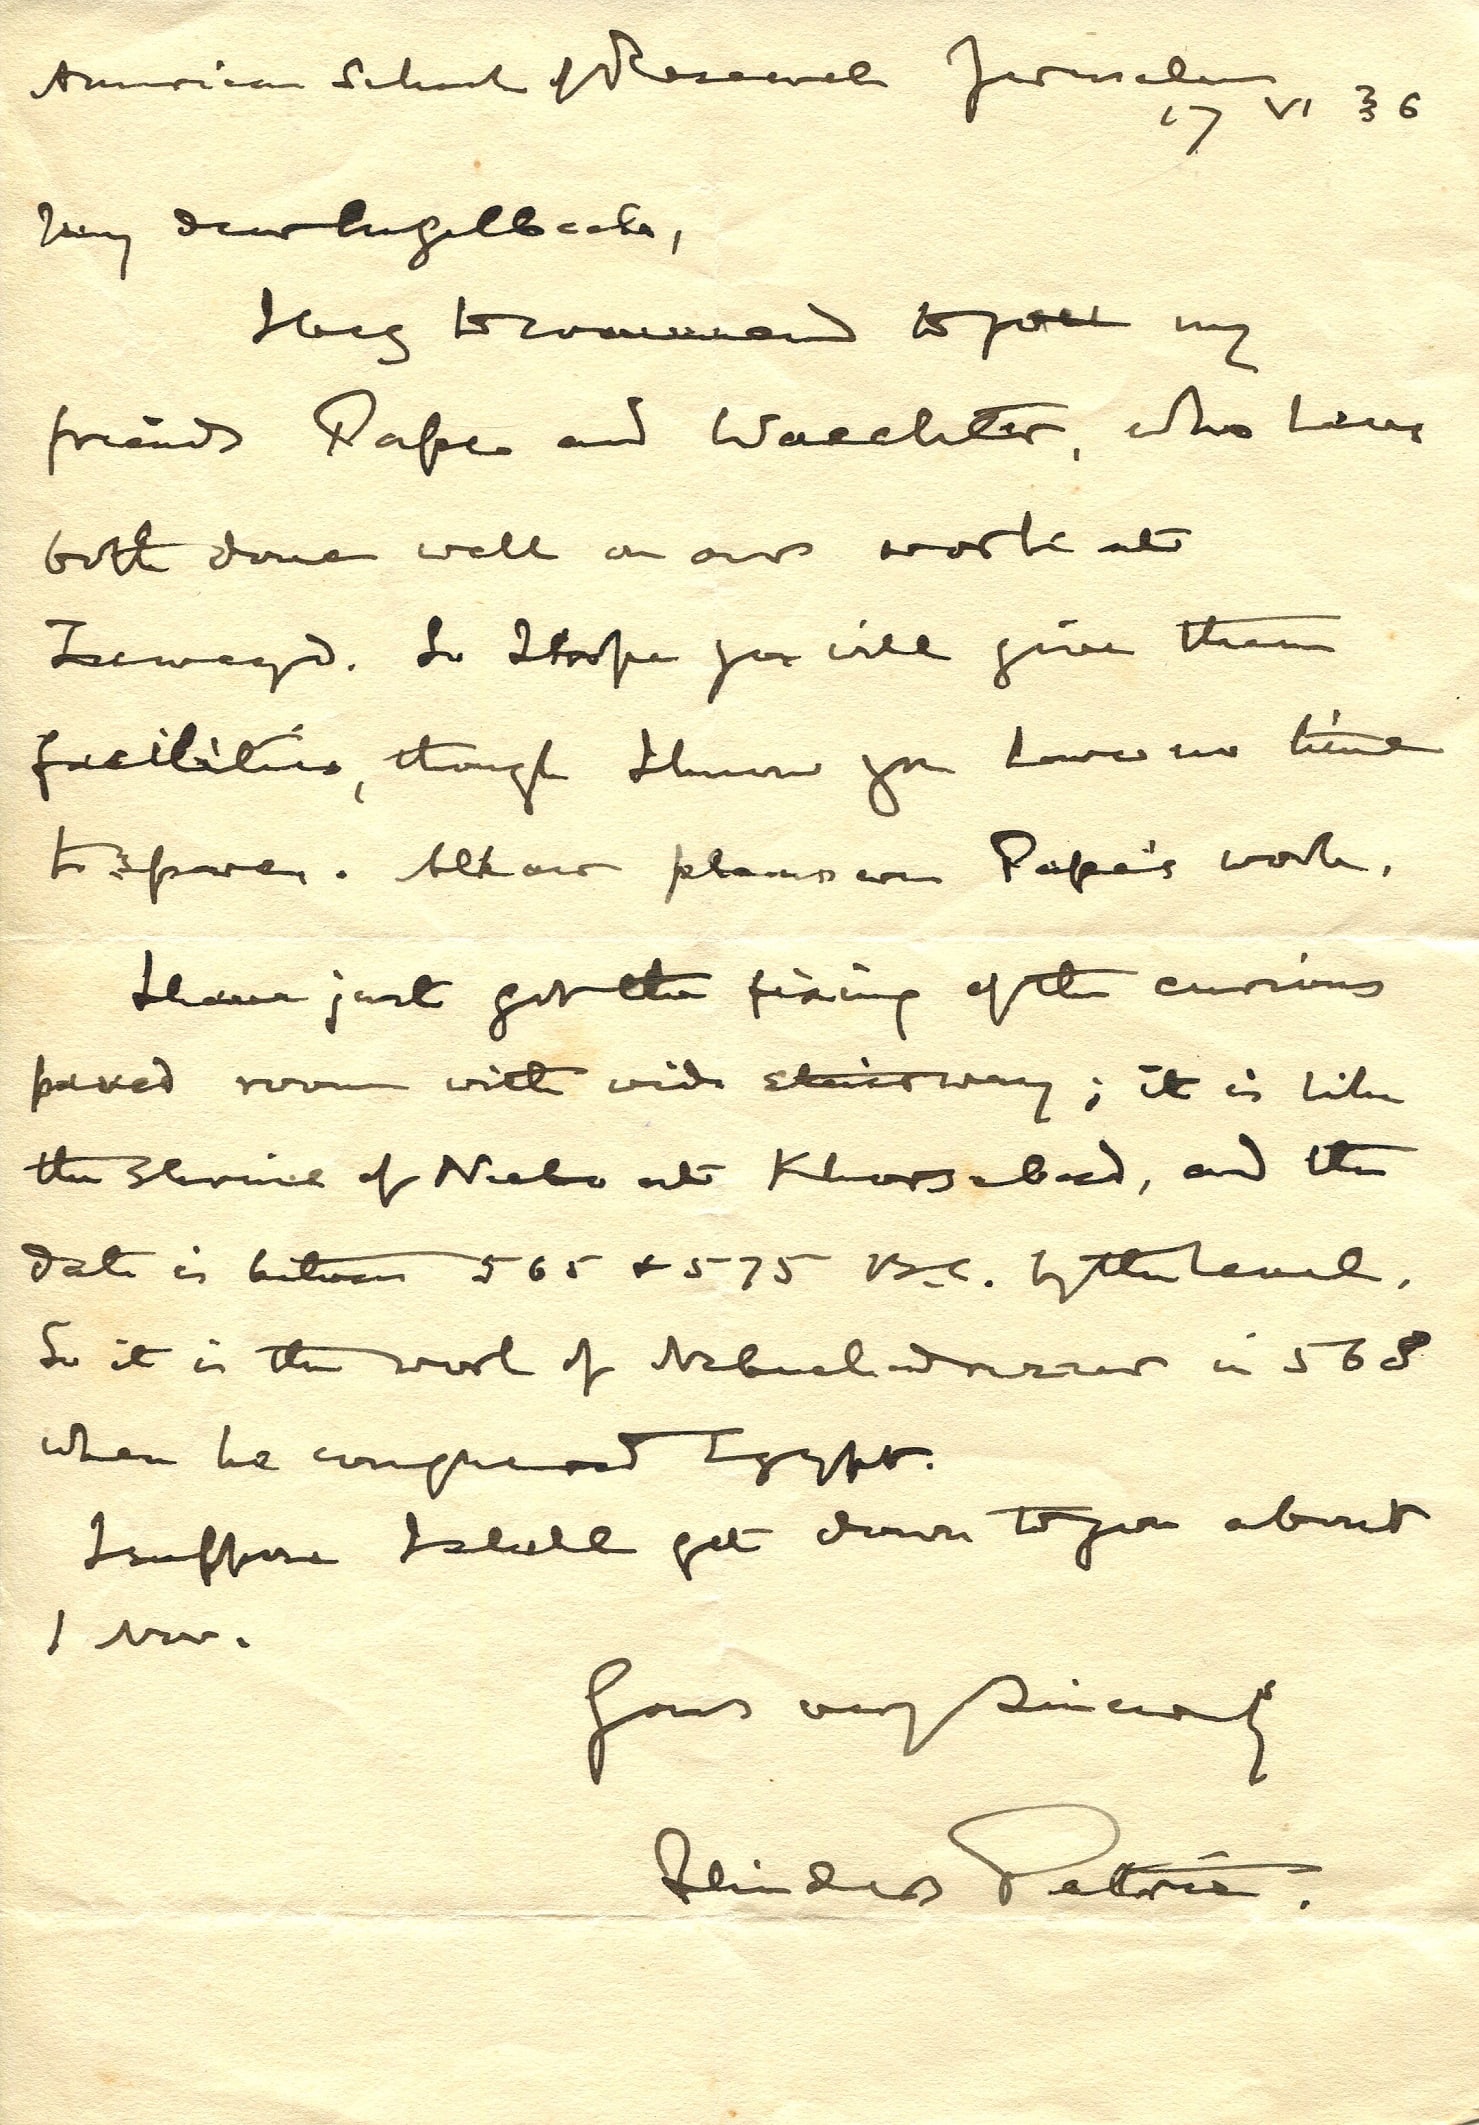 American School of Research Jerusalem
17 VI 36
My dear Engelbach,
I beg to recommend to you my
friends Pape and Waechter, who have
both done well on our work at
Zeweyd. So I hope you will give them
facilities, though I know you have no time
to spare. All our plans are Pape's work.
I have just got the fixing of the curious
paved room with wide stairway; it is like
the shrine of Nebo at Khorsabad, and the
date is between 565 & 575 B.C. by the level.
So it is the work of Nebuchadrezzar in 568
when he conquered Egypt.
I suppose I shall get down to you about
1 Nov.
Yours very sincerely
Flinders Petrie.